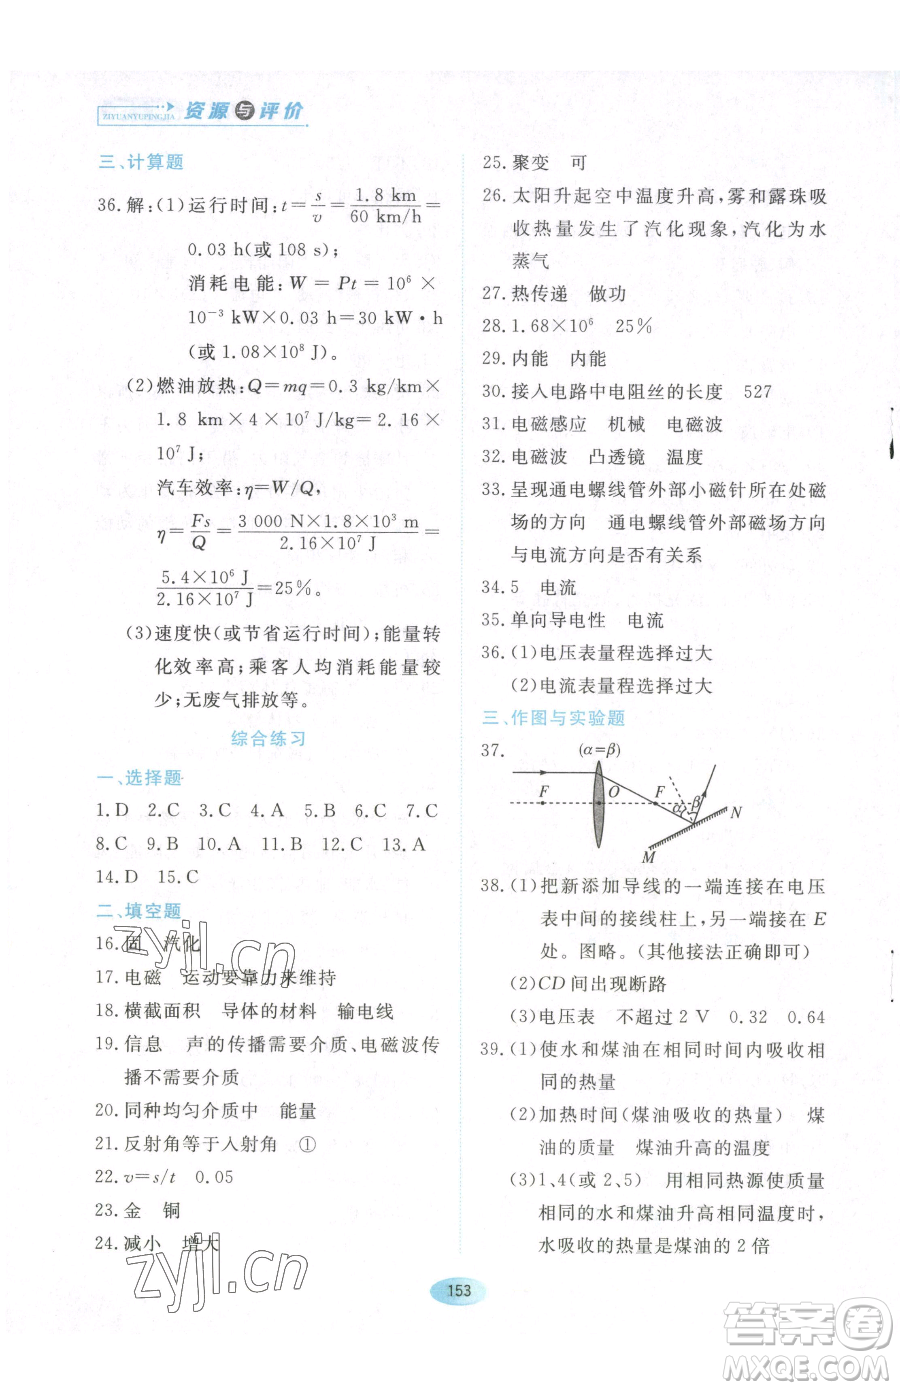 资源与评价
ZIYUANYUPINGJIA
三、计算题
36.解:(1)运行时间:t=s/v=1.8 km/60 km/h=
0.03 h(或 108 s);
消耗电能:W=Pt=10⁶×
10⁻³ kW×0.03 h=30 kW·h
(或 1.08×10⁸ J)。
(2)燃油放热:Q=mq=0.3 kg/km×
1.8 km×4×10⁷ J/kg=2.16×
10⁷ J;
汽车效率:η=W/Q,
η=Fs/Q=3 000 N×1.8×10³ m/2.16×10⁷ J=
5.4×10⁶ J/2.16×10⁷ J=25%。
(3)速度快(或节省运行时间);能量转
化效率高;乘客人均消耗能量较
少;无废气排放等。
综合练习
一、选择题
1.D 2.C 3.C 4.A 5.B 6.C 7.C
8.C 9.B 10.A 11.A 12.C 13.A
14.D 15.C
二、填空题
16.固 汽化
17.电磁 运动要靠力来维持
18.横截面积 导体的材料 输电线
19.信息 声的传播需要介质、电磁波传
播不需要介质
20.同种均匀介质中 能量
21.反射角等于入射角 ①
22.v=s/t 0.05
23.金 铜
24.减小 增大
25.聚变 可
26.太阳升起空中温度升高,雾和露珠吸
收热量发生了汽化现象,汽化为水
蒸气
27.热传递 做功
28.1.68×10⁶ 25%
29.内能 内能
30.接入电路中电阻丝的长度 527
31.电磁感应 机械 电磁波
32.电磁波 凸透镜 温度
33.呈现通电螺线管外部小磁针所在处磁
场的方向 通电螺线管外部磁场方向
与电流方向是否有关系
34.5 电流
35.单向导电性 电流
36.(1)电压表量程选择过大
(2)电流表量程选择过大
三、作图与实验题
37.
(α=β)
F O F α β N
M
38.(1)把新添加导线的一端连接在电压
表中间的接线柱上,另一端接在 E
处。图略。(其他接法正确即可)
(2)CD间出现断路
(3)电压表 不超过2 V 0.32 0.64
39.(1)使水和煤油在相同时间内吸收相
同的热量
(2)加热时间(煤油吸收的热量) 煤
油的质量 煤油升高的温度
(3)1、4(或 2、5) 用相同热源使质量
相同的水和煤油升高相同温度时,
水吸收的热量是煤油的 2 倍
153
zyjl.cn
zyjl.cn
答案卷
MXQE.COM